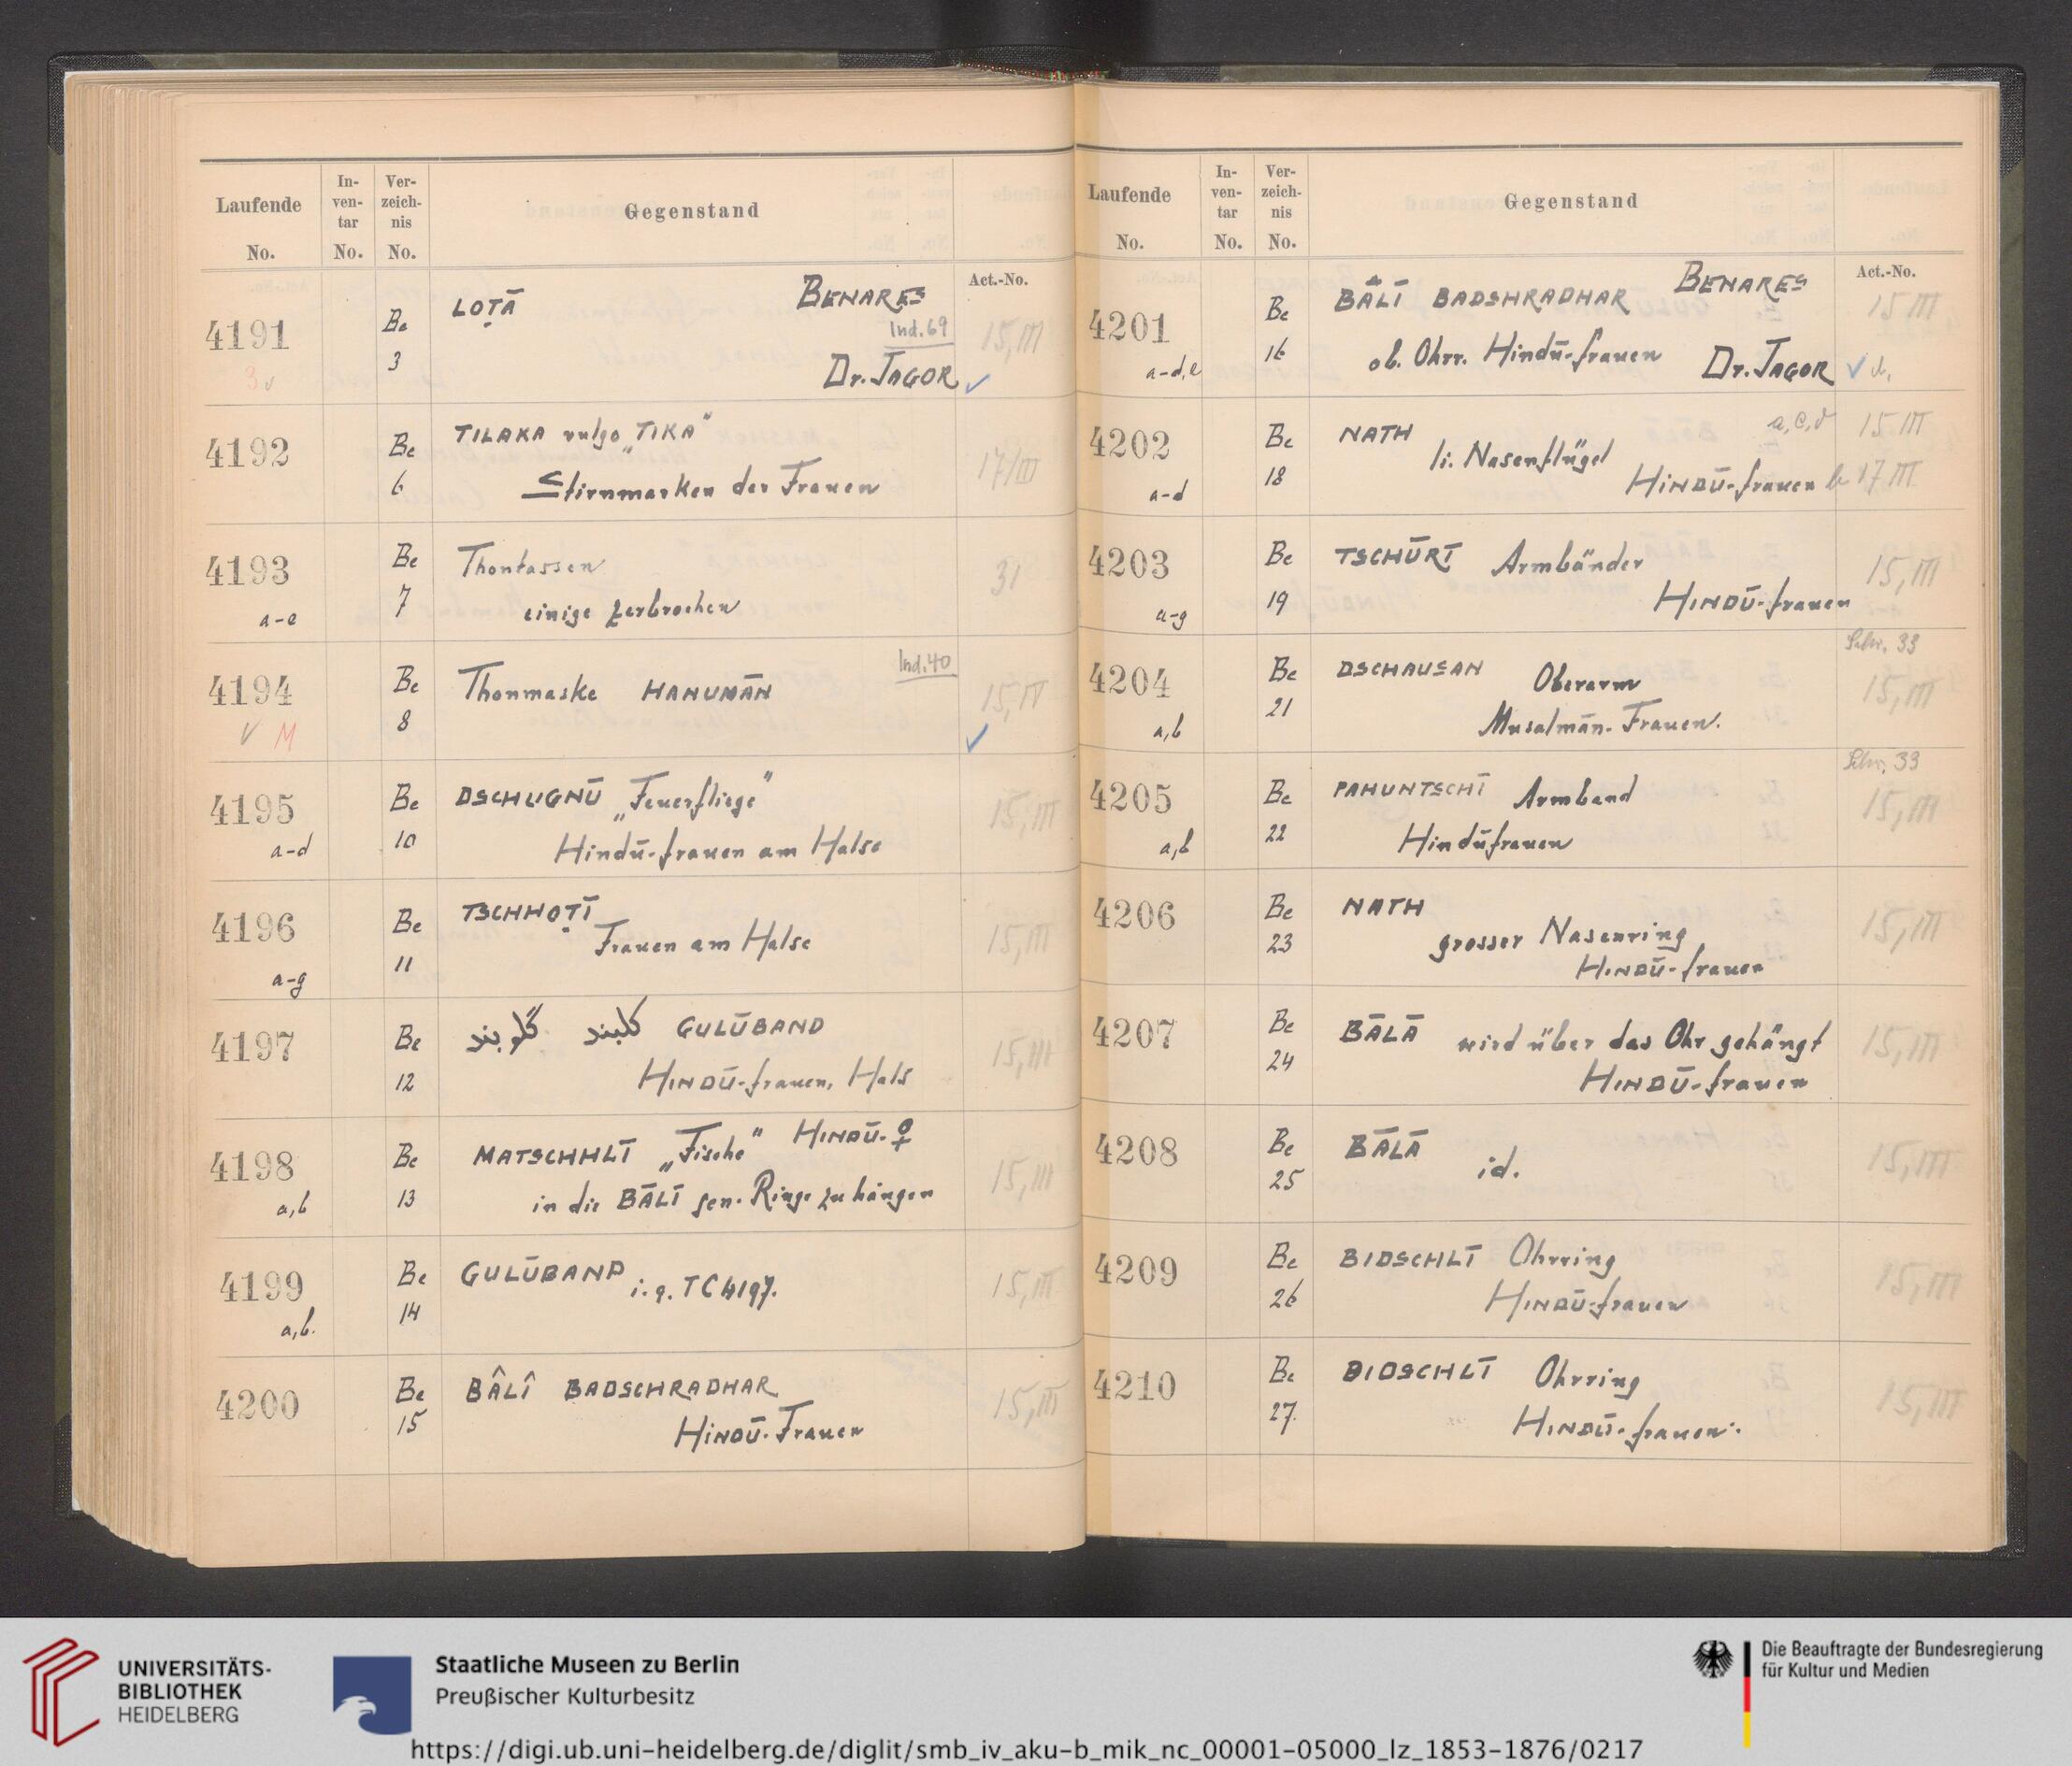 Laufende No.
In-ven-tar No.
Ver-zeich-nis No.
Gegenstand
Act.-No.
4191 Be 3 LOṬĀ BENARES
Ind. 69 15,III
Dr. JAGOR ✓
4192 Be 6 TILAKA vulgo „TIKA"
Stirnmarken der Frauen 17/III
4193 a-e Be 7 Thontassen 31
einige zerbrochen
4194 ✓ M Be 8 Thonmaske HANUMĀN Ind. 40 15,IV ✓
4195 a-d Be 10 DSCHUGNŪ „Feuerfliege" 15,III
Hindū-frauen am Halse
4196 a-g Be 11 TSCHHOṬĪ
Frauen am Halse 15,III
4197 Be 12 گلوبند گلبند GULŪBAND 15,III
HINDŪ-frauen, Hals
4198 a,b Be 13 MATSCHHLĪ „Fische" HINDŪ-♀
in die BĀLĪ gen. Ringe zu hängen 15,III
4199 a,b. Be 14 GULŪBAND i.q. TC 4197. 15,III
4200 Be 15 BÂLÎ BADSCHRADHAR 15,III
HINDŪ-Frauen
Laufende No.
In-ven-tar No.
Ver-zeich-nis No.
Gegenstand
Act.-No.
4201 a-d,e Be 16 BĀLĪ BADSHRADHAR BENARES 15 III
ob. Ohrr. Hindū-frauen Dr. JAGOR ✓
4202 a-d Be 18 NATH a,c,d 15 III
li. Nasenflügel
HINDŪ-frauen b 17 III
4203 a-g Be 19 TSCHŪRĪ Armbänder 15,III
HINDŪ-frauen
4204 a,b Be 21 DSCHAUSAN Oberarm Schr. 33
Musalmān-Frauen. 15,III
4205 a,b Be 22 PAHUNTSCHĪ Armband Schr. 33
Hindūfrauen 15,III
4206 Be 23 NATH
grosser Nasenring 15,III
HINDŪ-frauen
4207 Be 24 BĀLĀ wird über das Ohr gehängt 15,III
HINDŪ-frauen
4208 Be 25 BĀLĀ id. 15,III
4209 Be 26 BIDSCHLĪ Ohrring 15,III
HINDŪ-frauen
4210 Be 27. BIDSCHLĪ Ohrring 15,III
HINDŪ-frauen.
UNIVERSITÄTS-
BIBLIOTHEK
HEIDELBERG
Staatliche Museen zu Berlin
Preußischer Kulturbesitz
Die Beauftragte der Bundesregierung
für Kultur und Medien
https://digi.ub.uni-heidelberg.de/diglit/smb_iv_aku-b_mik_nc_00001-05000_lz_1853-1876/0217